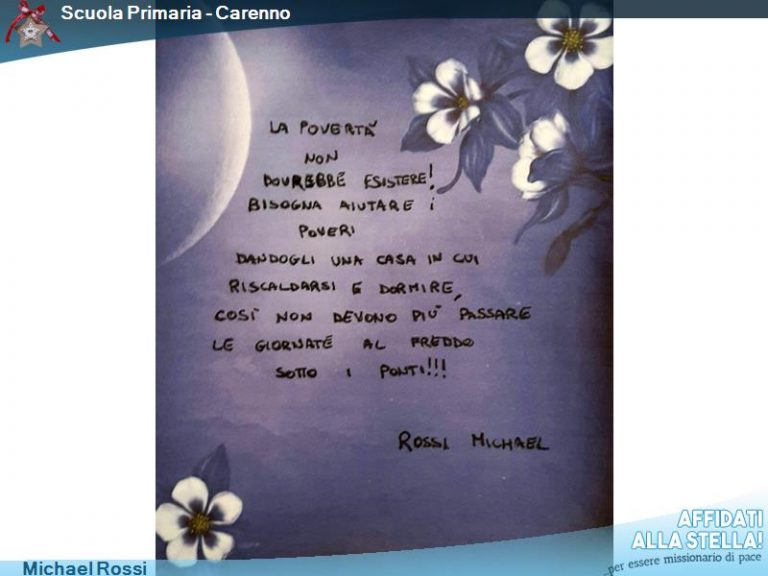 Scuola Primaria - Carenno
LA POVERTÀ
NON
DOVREBBE ESISTERE!
BISOGNA AIUTARE i
POVERI
DANDOGLI UNA CASA IN CUI
RISCALDARSI E DORMIRE,
COSÌ NON DEVONO PIÙ PASSARE
LE GIORNATE AL FREDDO
SOTTO I PONTI!!!
ROSSI MICHAEL
AFFIDATI
ALLA STELLA!
...per essere missionario di pace
Michael Rossi